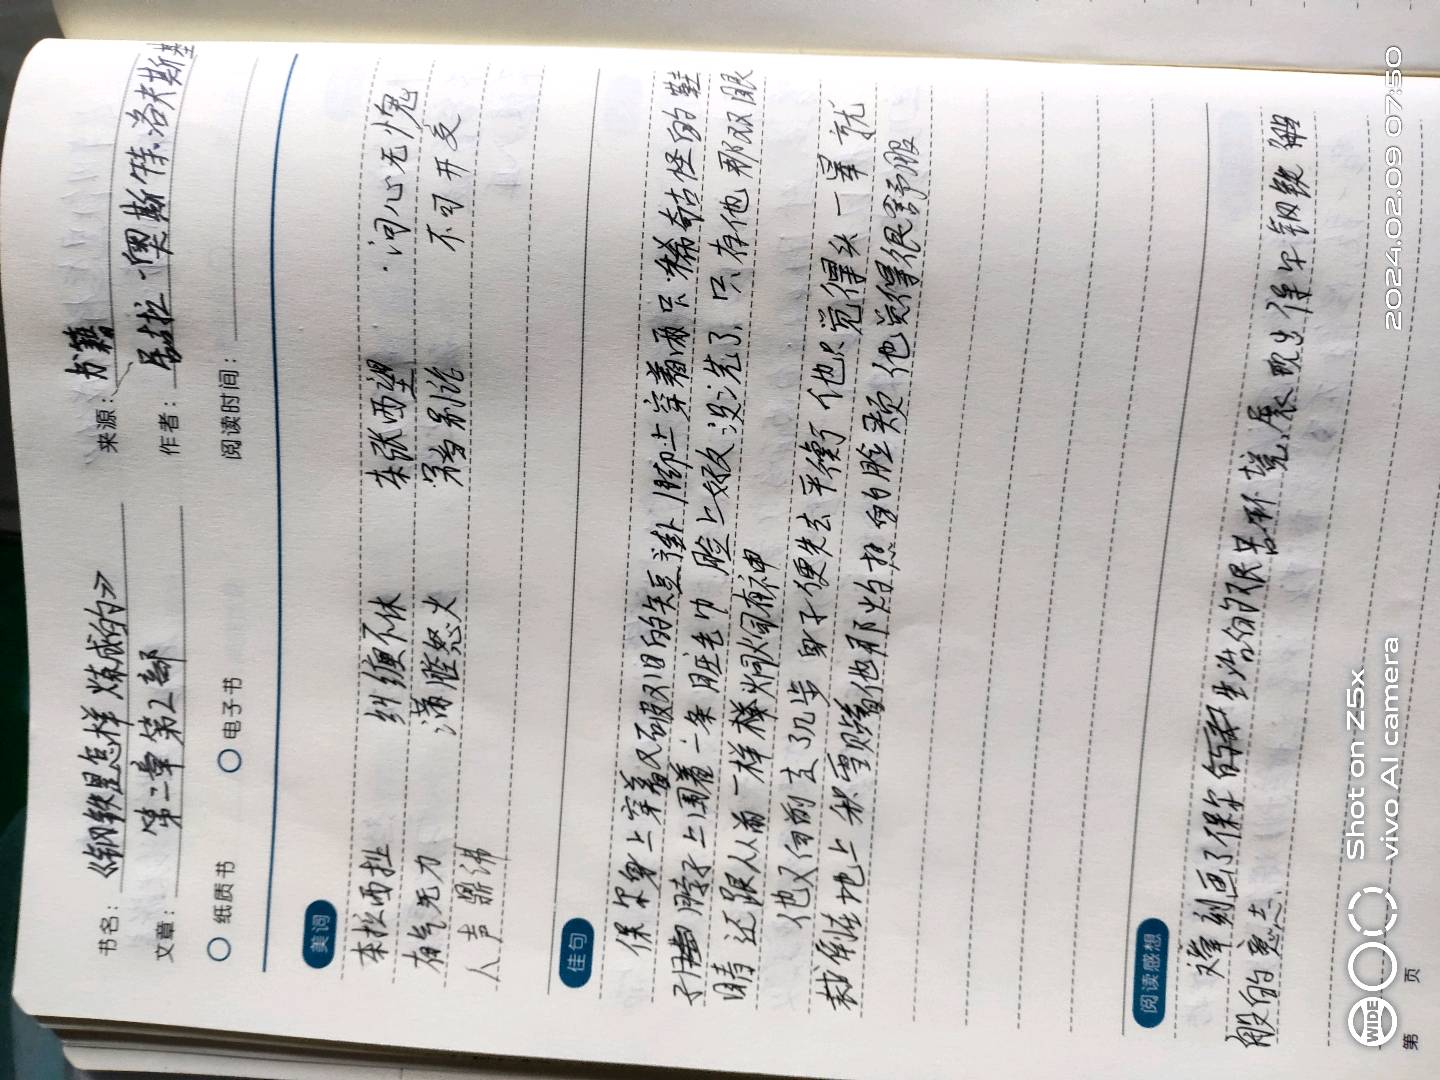 书名：《钢铁是怎样炼成的》
来源：书籍
文章：第二章 第二部
作者：尼古拉·奥斯特洛夫斯基
纸质书 电子书
阅读时间：
美词
东拉西扯 纠缠不休 东张西望 问心无愧
有气无力 满腔怒火 不可开交
人声鼎沸
佳句
保尔身上穿着又破又旧的短
子 脖子上围着一条脏毛巾 脸上好久没洗了，只有他那双眼
睛还跟从前一样 炯炯有神
他又向前走了几步 身子便失去平衡了 他只觉得头一晕 就
栽倒在地上 积雪贴着他那灼热的脸颊 他觉得很舒服
阅读感想
文章刻画了保尔 生活的艰苦环境，展现出保尔钢铁般
般的意志。
第 页
WIDE
Shot on Z5x
vivo AI camera
2024.02.09 07:50